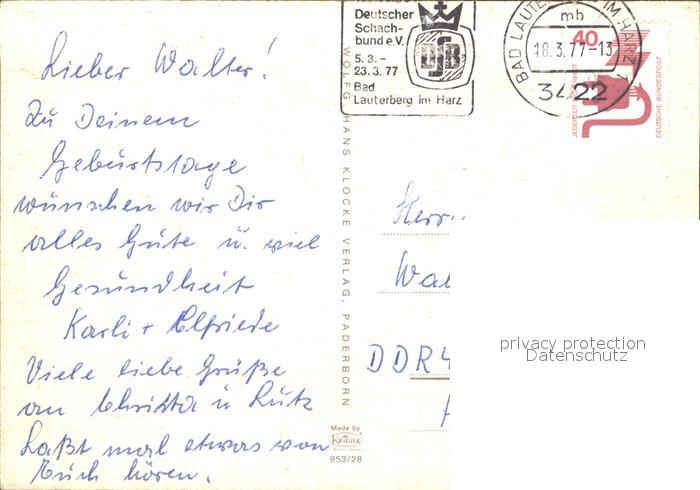 Lieber Walter!
Zu Deinem
Geburtstage
wünschen wir Dir
alles Gute u. viel
Gesundheit
Karli + Elfriede
Viele liebe Grüße
an Christa u Lutz
Laßt mal etwas von
Euch hören.
Deutscher
Schach-
bund e.V.
5.3.-
23.3.77
Bad
Lauterberg im Harz
dsb
BAD LAUTERBERG IM HARZ 1
mb
18.3.77-13
3422
40
JEDERZEIT SICHERHEIT
DEUTSCHE BUNDESPOST
WOLFGANG HANS KLOCKE VERLAG, PADERBORN
Herrn
Wal
DDR 4
privacy protection
Datenschutz
Made by
KRÜGER
953/28